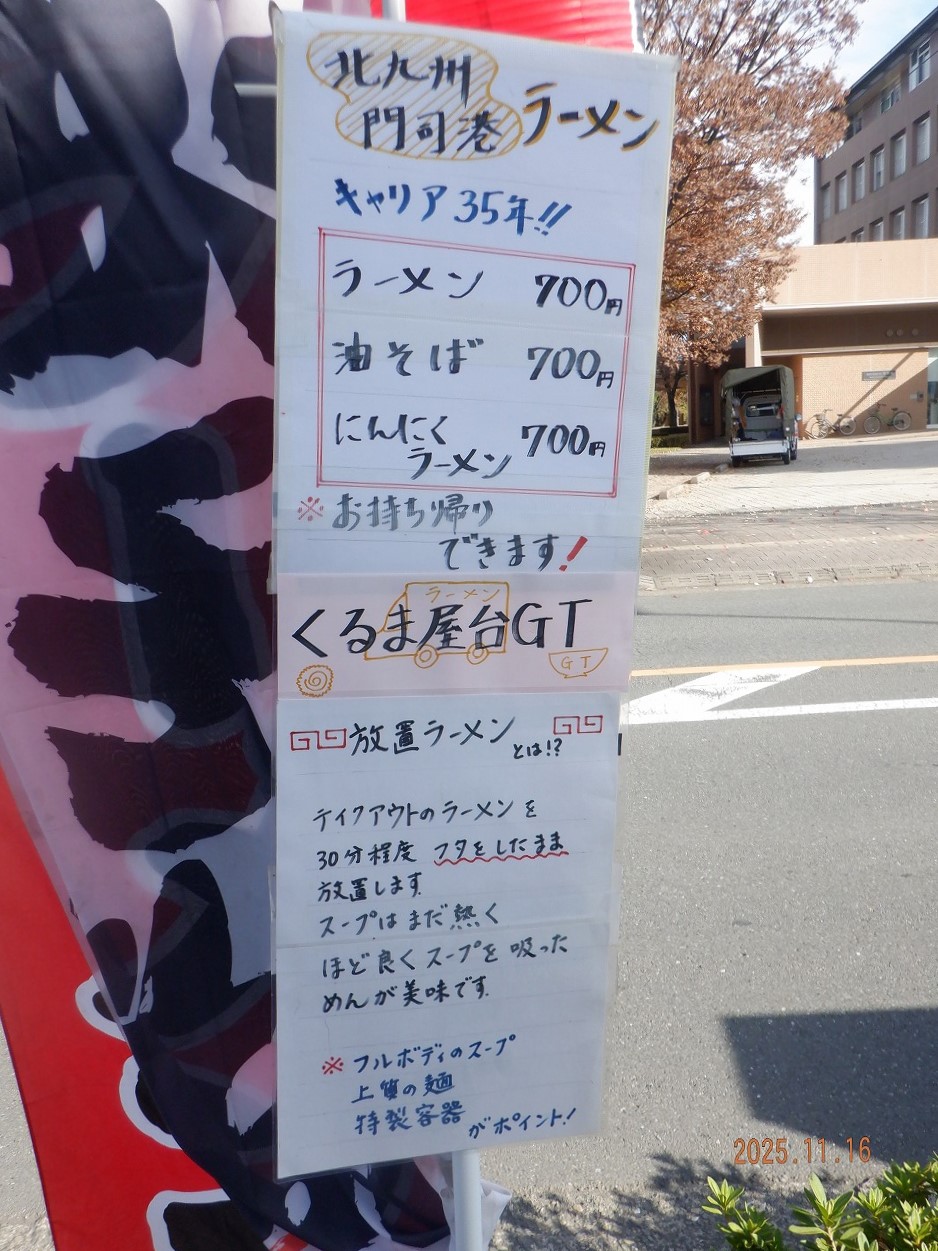 北九州
門司港 ラーメン
キャリア 35年!!
ラーメン 700円
油そば 700円
にんにく
ラーメン 700円
※お持ち帰り
できます!
ラーメン
くるま屋台GT
GT
放置ラーメン とは!?
テイクアウトのラーメンを
30分程度 フタをしたまま
放置します
スープはまだ熱く
ほど良くスープを吸った
めんが美味です.
※フルボディのスープ
上質の麺
特製容器 がポイント!
2025.11.16